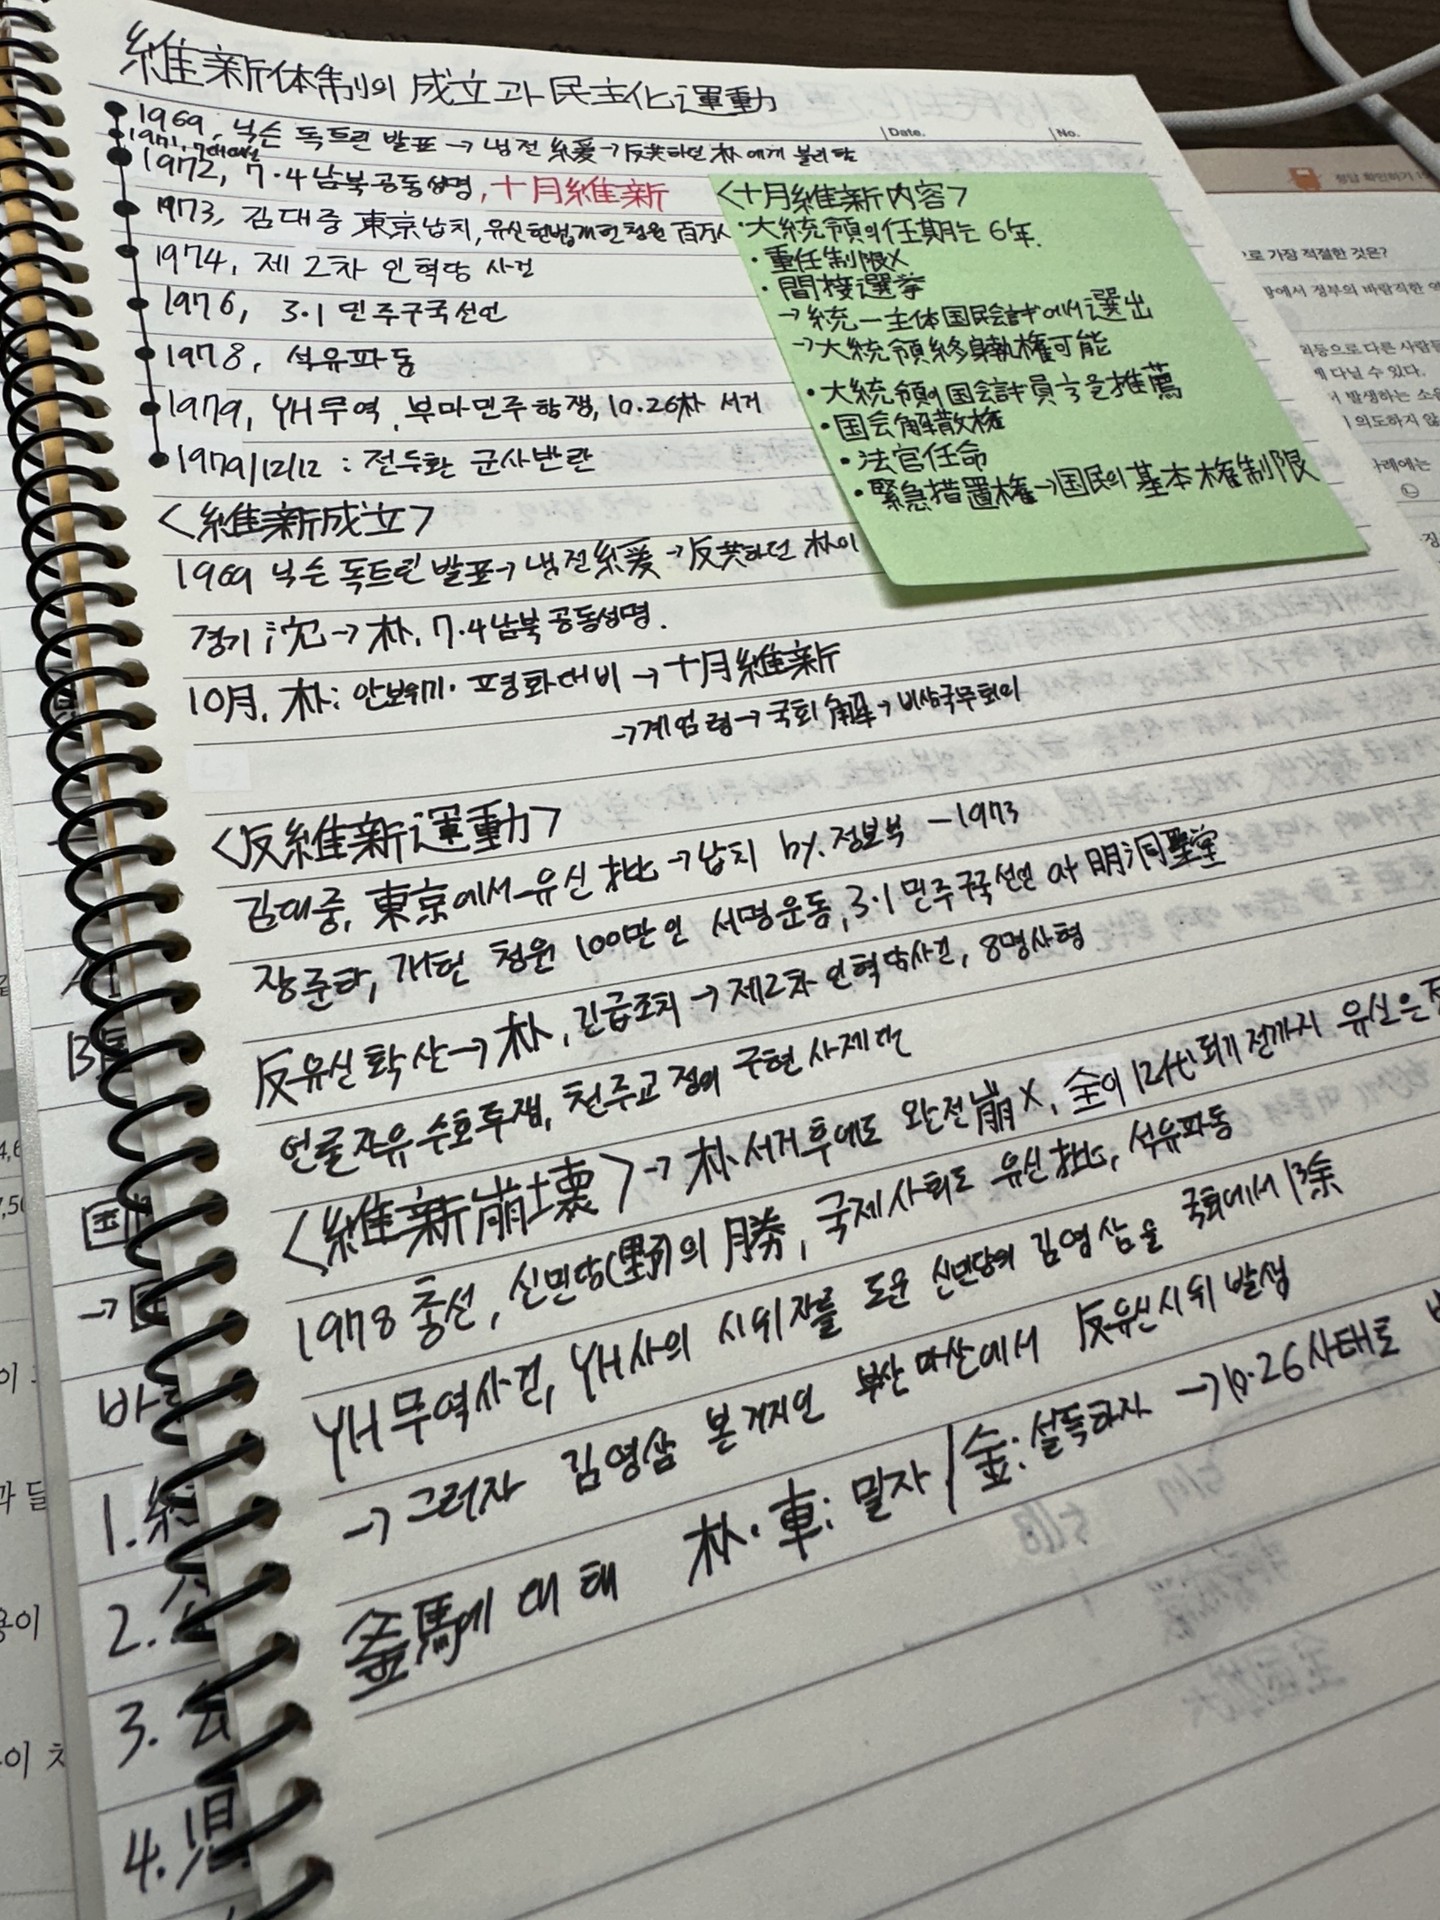 維新体制의 成立과 民主化運動
Date. No.
1969, 닉슨 독트린 발표→냉전 緩→反共하던 朴에게 불리함
1971, 7대대선
1972, 7·4남북공동성명, 十月維新
1973, 김대중 東京납치, 유신헌법개헌청원 百万人
1974, 제2차 인혁당 사건
1976, 3·1 민주구국선언
1978, 석유파동
1979, YH무역, 부마민주항쟁, 10.26朴 서거
1979/12/12 : 전두환 군사반란
<十月維新内容>
·大統領의任期는 6年.
·重任制限X
·間接選挙
→統一主体国民会計에서選出
→大統領終身執権可能
·大統領이国会計員⅓을推薦
·国会解散権
·法官任命
·緊急措置権→国民의基本権制限
<維新成立>
1969 닉슨 독트린 발표→냉전緩→反共하던 朴이
경기 沈→朴, 7·4남북공동성명.
10月, 朴: 안보위기·평화대비→十月維新
→계엄령→국회解→비상국무회의
<反維新運動>
김대중, 東京에서 유신批→납치 by.정보부 -1973
장준하, 개헌 청원 100만인 서명운동, 3·1민주구국선언 at 明洞聖堂
反유신확산→朴, 긴급조치→제2차인혁당사건, 8명사형
언론자유수호투쟁, 천주교 정의 구현 사제단
<維新崩壊>→朴서거후에도 완전崩X, 全이 12代되기 전까지 유신은
1978 총선, 신민당(野)의 勝, 국제사회도 유신批, 석유파동
YH무역사건, YH사의 시위자를 도운 신민당의 김영삼을 국회에서 除
→그러자 김영삼 본거지인 부산마산에서 反유신시위 발생
釜馬에 대해 朴·車: 밀자/金: 설득하자→10·26사태로
1.
2.
3.
4.
정답 확인하기
으로 가장 적절한 것은?
에서 정부의 바람직한
회등으로 다른 사람들
다닐 수 있다.
발생하는 소음
의도하지 않